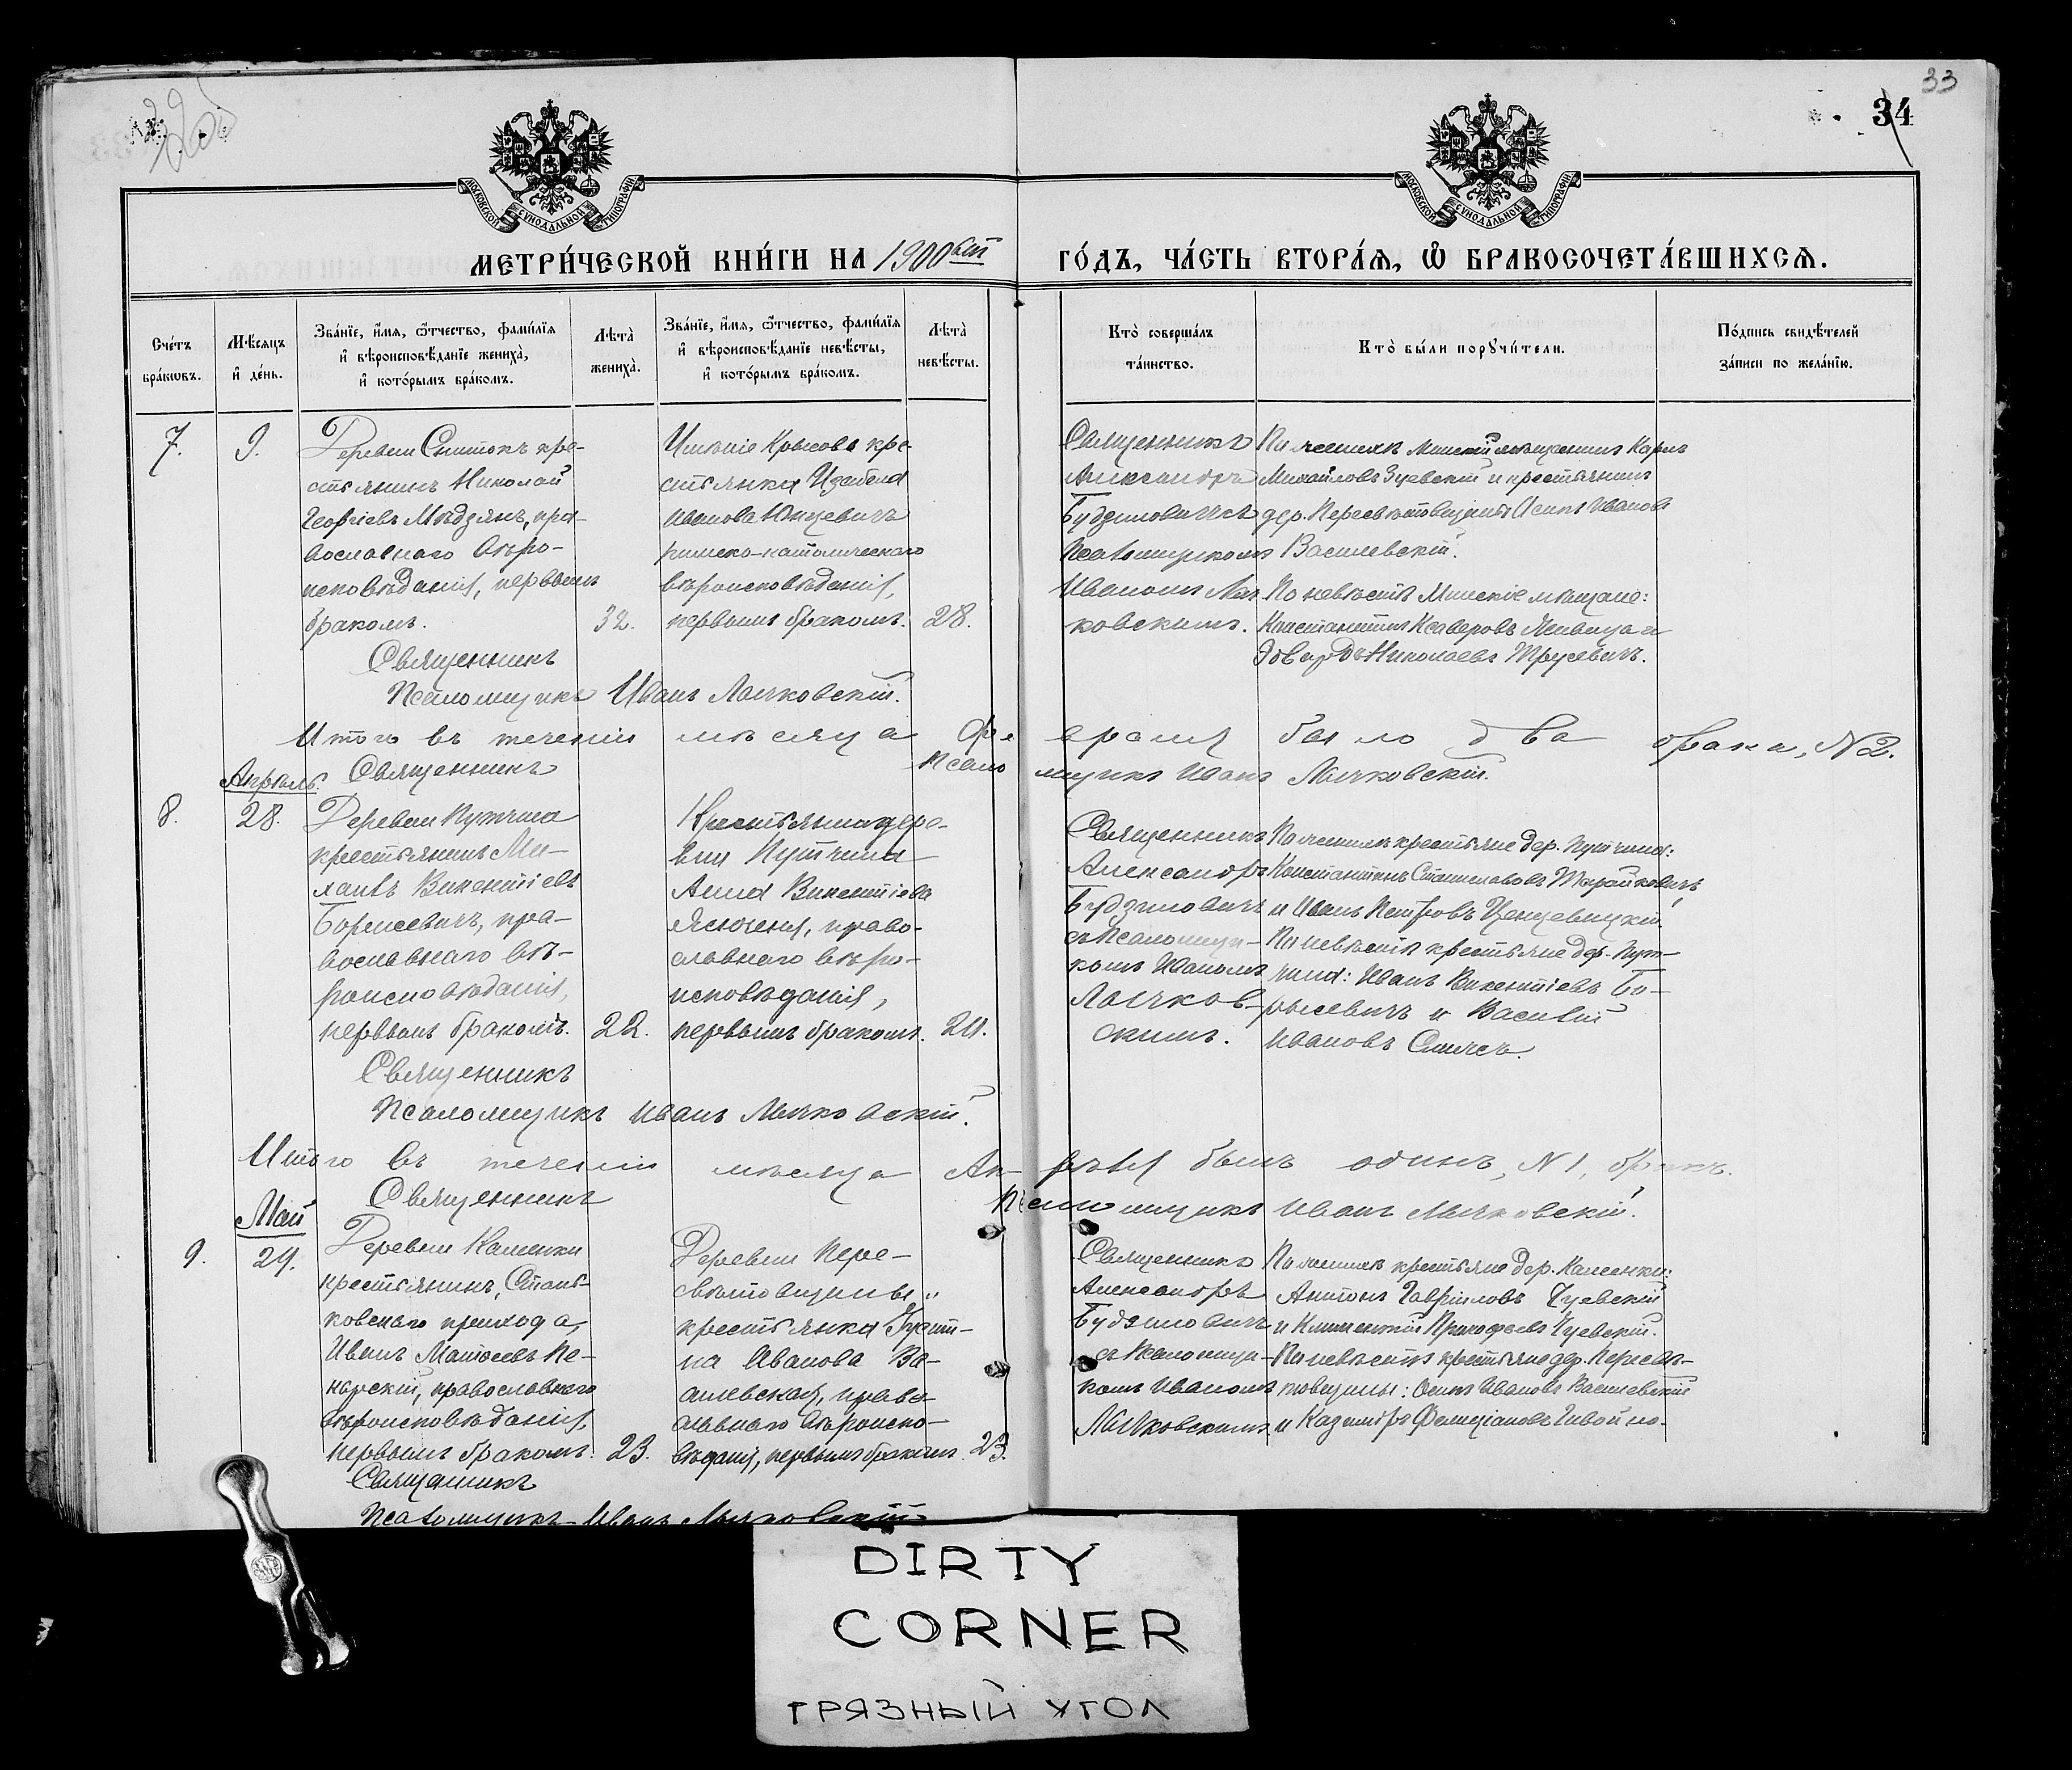 33
34
МОСКОВСКОЙ СѴНОДАЛЬНОЙ ТИПОГРАФІИ
МОСКОВСКОЙ СѴНОДАЛЬНОЙ ТИПОГРАФІИ
МЕТРИ́ЧЕСКОЙ КНИ́ГИ НА 1900ый ГО́ДЪ, ЧА́СТЬ ВТОРА́Я, Ѡ҆ БРАКОСОЧЕТА́ВШИХСѦ.
Сче́тъ бра́кѡвъ.
Мѣ́сяцъ и҆ де́нь.
Зва́нїе, и҆́мя, ѻ҆́тчество, фами́лїя
и҆ вѣроисповѣ́данїе жениха̀,
и҆ кото́рымъ бра́комъ.
Лѣ́та̀ жениха̀.
Зва́нїе, и҆́мя, ѻ҆́тчество, фами́лїя
и҆ вѣроисповѣ́данїе невѣ́сты,
и҆ кото́рымъ бра́комъ.
Лѣ́та̀ невѣ́сты.
Кто̀ соверша́лъ та́инство.
Кто̀ бы́ли порꙋчи́тели.
По́дпись свидѣ́телей за́писи по жела́нїю.
7.
9.
Деревни Снитокъ кре-
стьянинъ Николай
Георгіевъ Мѣдзянъ, пра-
вославнаго вѣро-
исповѣданія, первымъ
бракомъ.
32.
Имѣніе Крысово кре-
стьянка Изабела
Иванова Юнцевичъ
римско-католическаго
вѣроисповѣданія,
первымъ бракомъ.
28.
Священникъ
Александръ
Будзиловичъ съ
Псаломщикомъ
Иваномъ Лыч-
ковскимъ.
По женихѣ Минскій мѣщанинъ Карлъ
Михайловъ Зуевскій и крестьянинъ
дер. Пересѣтовщины Осипъ Ивановъ
Василевскій.
По невѣстѣ Минскіе мѣщане:
Константинъ Ксаверовъ и
Эдвардъ Николаевъ Трусевичъ.
Священникъ
Псаломщикъ Иванъ Лычковскій.
Итого въ теченіи мѣсяца Фев
враля было два брака, N 2.
Священникъ
Псаломщикъ Иванъ Лычковскій.
Апрѣль.
8.
28.
Деревни Путчина
крестьянинъ Ми-
хаилъ Викентіевъ
Борисевичъ, пра-
вославнаго вѣ-
роисповѣданія,
первымъ бракомъ.
22.
Крестьянка дере-
вни Путчина
Анна Викентіева
Ясюченя, право-
славнаго вѣро-
исповѣданія,
первымъ бракомъ.
21.
Священникъ
Александръ
Будзиловичъ
съ Псаломщи-
комъ Иваномъ
Лычков-
скимъ.
По женихѣ крестьяне дер. Путчина:
Константинъ Станиславовъ
и Иванъ Петровъ
По невѣстѣ крестьяне дер. Пут-
чина: Иванъ Викентіевъ Бо-
рисевичъ и Василій
Ивановъ
Священникъ
Псаломщикъ Иванъ Лычковскій.
Итого въ теченіи мѣсяца Ап-
рѣля былъ одинъ, N 1, бракъ.
Священникъ
Псаломщикъ Иванъ Лычковскій.
Май
9.
29.
Деревни Каменки
крестьянинъ, Стань-
ковскаго прихода,
Иванъ Матѳеевъ Пе-
нарскій, православнаго
вѣроисповѣданія,
первымъ бракомъ.
23.
Деревни Пере-
сѣтовщины
крестьянка Густи-
на Иванова Ва-
силевская, право-
славнаго вѣроиспо-
вѣданія, первымъ бракомъ.
23.
Священникъ
Александръ
Будзиловичъ
съ Псаломщи-
комъ Иваномъ
Лычковскимъ.
По женихѣ крестьяне дер. Каменки:
Антонъ Гавріиловъ Чуевскій
и Климентій Прокофьевъ Чуевскій.
По невѣстѣ крестьяне дер. Пересѣ-
товщины: Осипъ Ивановъ Василевскій
и Казимиръ Фелиціановъ
Священникъ
Псаломщикъ Иванъ Лычковскій
DIRTY
CORNER
ГРЯЗНЫЙ УГОЛ